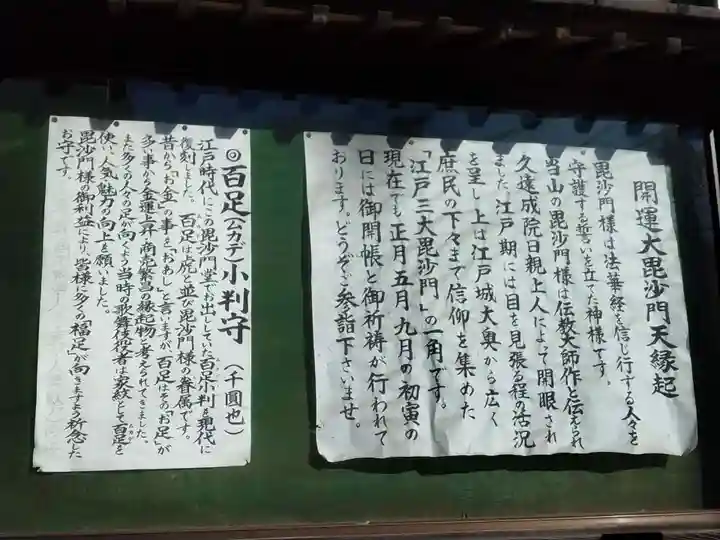 開運大毘沙門天縁起
毘沙門様は法華経を信じ行する人々を
守護する誓いを立てた神様です。
当山の毘沙門様は伝教大師作と伝えられ
久遠成院日親上人によって開眼され
ました。江戸期には目を見張る程の活況
を呈し、上は江戸城大奥から広く
庶民の下々まで信仰を集めた
「江戸三大毘沙門」の一角です。
現在でも正月五月九月の初寅の
日には御開帳と御祈祷が行われて
おります。どうぞご参詣下さいませ。
◎百足(ムカデ)小判守(千圓也)
江戸時代にこの毘沙門堂でお出ししていた百足小判を現代に
復刻しました。百足は虎と並び毘沙門様の眷属です。
昔から「お金」の事を「おあし」と言いますが、百足はその「お足」が
多い事から金運上昇、商売繁昌の縁起物と考えられてきました。
また多くの人々の足が向くよう当時の歌舞伎役者は家紋として百足を
使い、人気、魅力の向上を願いました。
毘沙門様の御利益により、皆様に多くの「福足」が向きますよう祈念した
お守です。